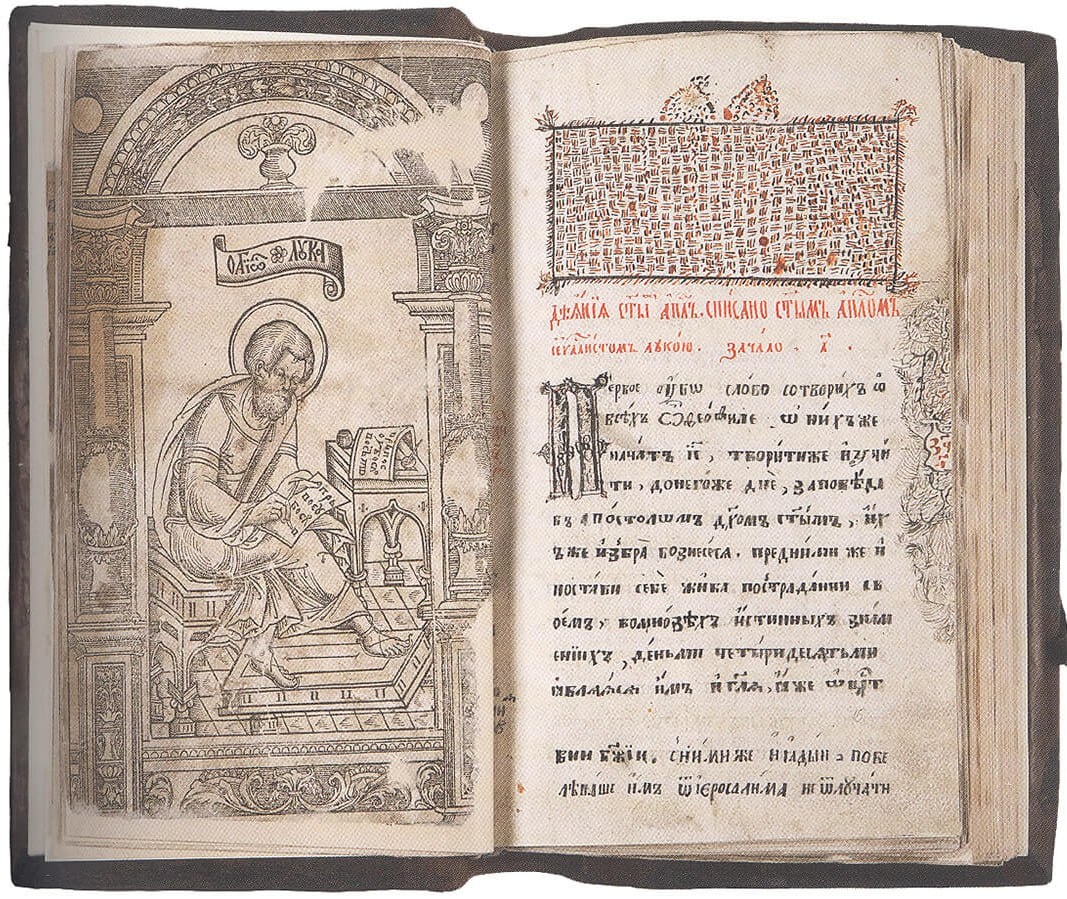 ОАГІѠ ЛУКА
дѣꙗнїѧ ст҃ы́ апл҃ъ. списано ст҃ымъ апⷭ҇ломъ
їєѵⷢ҇ли́стомъ лꙋкою. зача́ло. а҃.
Первоє ꙋ҆́бѡ сло́во сотвори́хъ ѡ҆
всѣ́хъ ѽ ѳео́филе, ѡ҆ ни́хъ же
нача́тъ і҆с҃, твори́тиже и҆ ꙋ҆чи́
ти, донего́же дн҃е, заповѣ́да
въ апо́столѡмъ дх҃омъ ст҃ы́мъ, и҆́х
ъже и҆збра̀ вознесе́сѧ. предни́ми же и҆
поста́ви себѐ жи́ва пострада́нїи св
ое́мъ, во мно́зѣхъ и҆́стинныхъ зна́м
енїихъ, де́ньми четы́ридесѧтьми
ꙗ҆влѧ́ѧсѧ и҆̀мъ и҆ гл҃ѧ, ꙗ҆́же ѡ҆ црⷭ҇т
вии бж҃їи. сни́миже и҆ ꙗ҆ды́й, пове
лѣва́ше и҆̀мъ ѿ і҆єросали́ма не ѿлꙋча́ти
зч҃